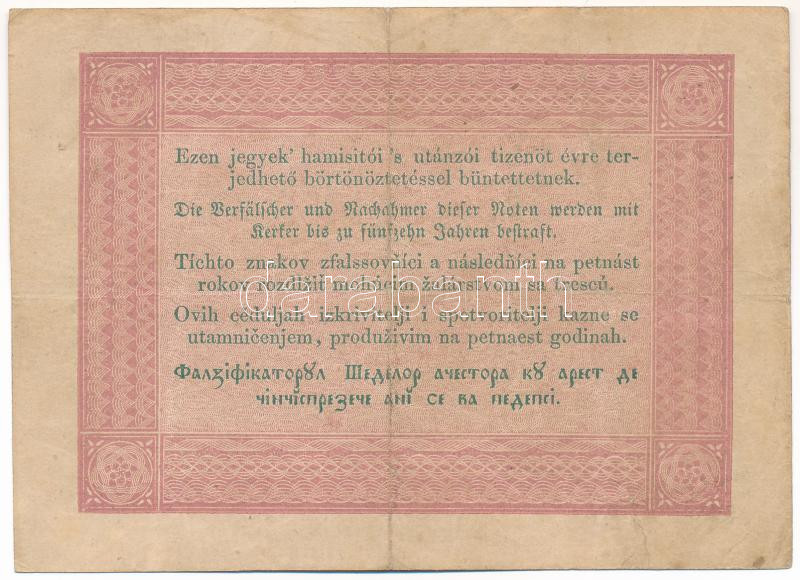 Ezen jegyek' hamisitói 's utánzói tizenöt évre ter-
jedhető börtönöztetéssel büntettetnek.
Die Verfälscher und Nachahmer dieser Noten werden mit
Kerker bis zu fünfzehn Jahren bestraft.
Tíchto znakov zfalssovňíci a následňíci na petnást
rokov rozdlžiť mohúcim žalárstvom sa trescú.
darabanth
Ovih ceduljah izkrivitelji i spetvoritelji kazne se
utamničenjem, produživim na petnaest godinah.
Фалзіфікаторꙋл Шеделор ачестора кꙋ арест де
чінчіспрезече анї се ва педепсі.